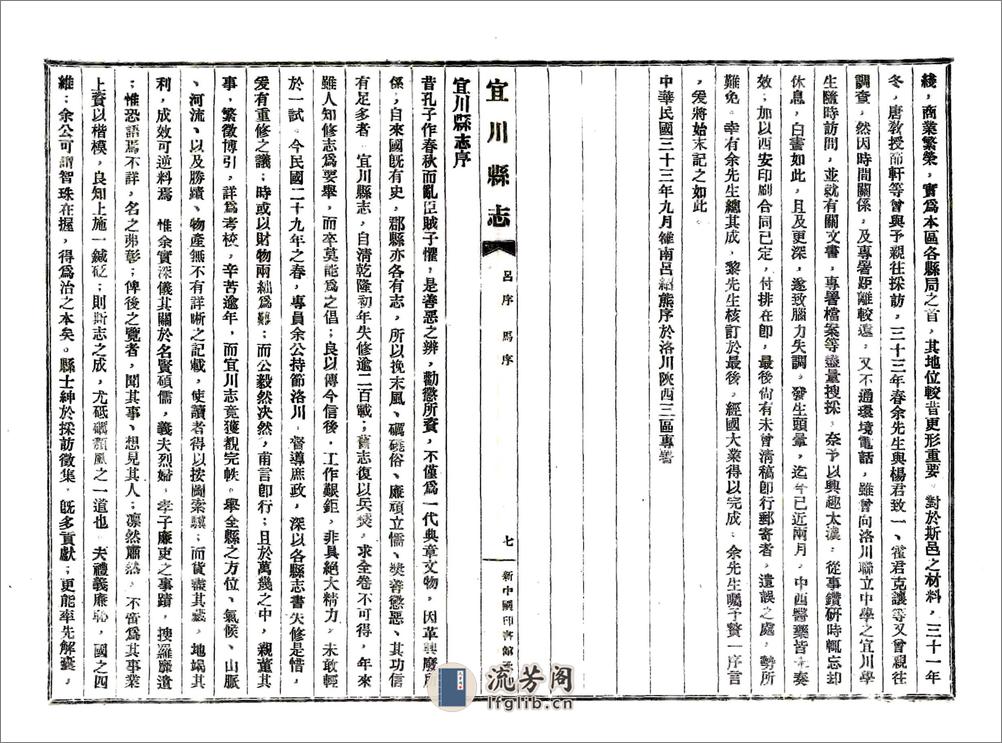 綫，商業繁榮，實爲本區各縣局之首，其地位較昔更形重要。對於斯邑之材料，三十一年
冬，唐敎授節軒等曾與予親往採訪，三十三年春余先生與楊君致一、霍君克讓等又曾親往
調查，然因時間關係，及專署距離較遠，又不通環境電話，雖曾向洛川聯立中學之宜川學
生隨時訪問，並就有關文書，專署檔案等盡量搜採，奈予以興趣太濃，從事鑽研時輒忘却
休息，白晝如此，且及更深，遂致腦力失調，發生頭暈，迄今已近兩月，中西醫藥皆未奏
效；加以西安印刷合同已定，付排在卽，最後尙有未曾清稿卽行郵寄者，遺誤之處，勢所
難免。幸有余先生總其成，黎先生核訂於最後，經國大業得以完成。余先生囑予贅一序言
，爰將始末記之如此。
中華民國三十三年九月雒南呂紹熊序於洛川陝西三區專署
宜川縣志
呂序 馬序
七
新中國印書館
宜川縣志序
昔孔子作春秋而亂臣賊子懼，是善惡之辨，勸懲所資，不僅爲一代典章文物，因革興廢所
係，自來國旣有史，郡縣亦各有志，所以挽末風、礪磽俗、廉頑立懦、獎善懲惡、其功信
有足多者。宜川縣志，自清乾隆初年失修逾二百載；舊志復以兵燹，求全卷不可得，年來
雖人知修志爲要舉，而卒莫能爲之倡；良以傳今信後，工作艱鉅，非具絕大精力，未敢輕
於一試。今民國二十九年之春，專員余公持節洛川，督導庶政，深以各縣志書失修是惜，
爰有重修之議；時或以財物兩絀爲難；而公毅然决然，甫言卽行；且於萬幾之中，親董其
事，繁徵博引，詳爲考校，辛苦逾年，而宜川志竟獲觀完帙。舉全縣之方位、氣候、山脈
、河流、以及勝蹟、物產無不有詳晰之記載，使讀者得以按圖索驥；而貨盡其藏，地竭其
利，成效可逆料焉。惟余實深儀其關於名賢碩儒，義夫烈婦，孝子廉吏之事蹟，搜羅靡遺
；惟恐語焉不詳，名之弗彰；俾後之覽者，聞其事、想見其人；凛然肅然，不啻爲其事業
上資以楷模，良知上施一鍼砭；則斯志之成，尤砥礪頽風之一道也。夫禮義廉恥，國之四
維；余公可謂智珠在握，得爲治之本矣。縣士紳於採訪徵集，旣多貢獻；更能率先解囊，
流芳阁
lfglib.cn